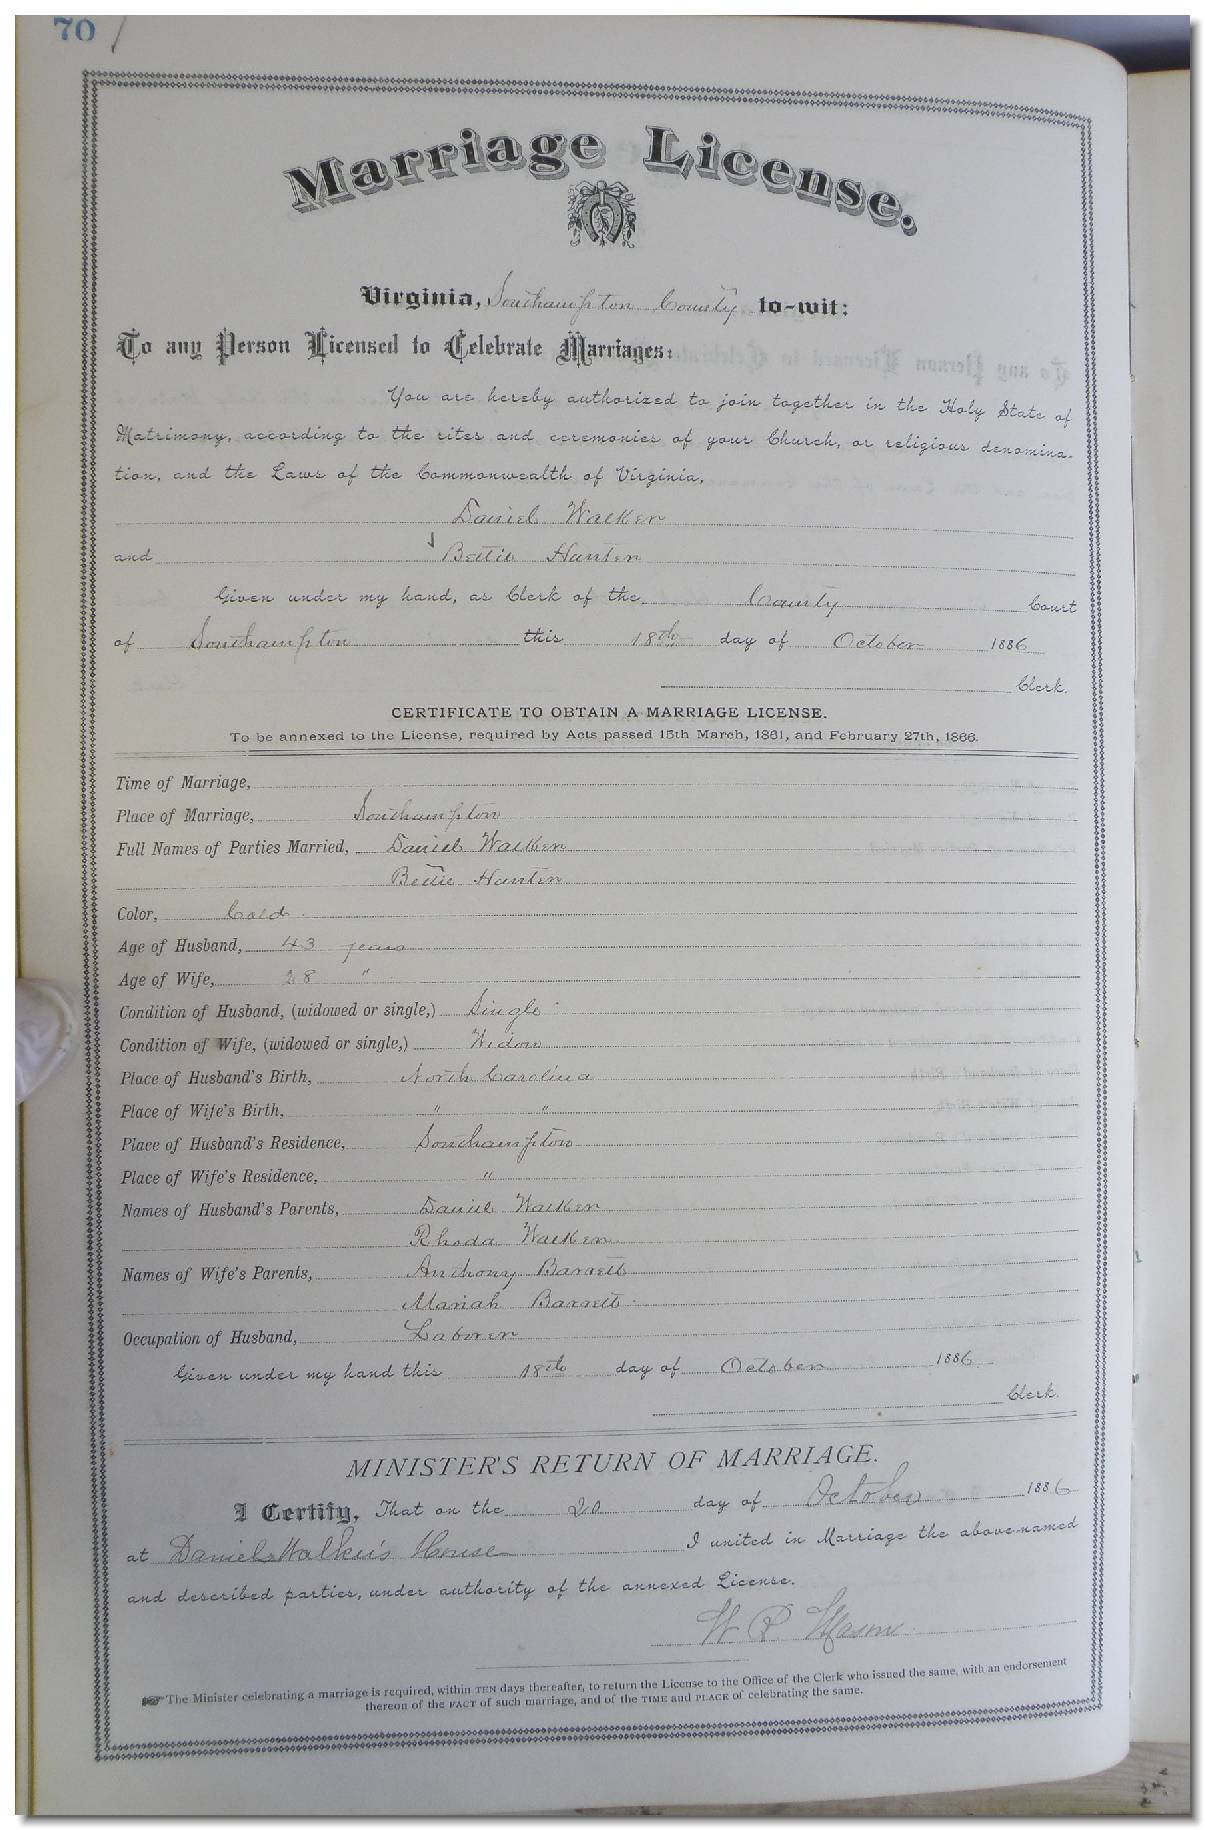 70
Marriage License.
Virginia, Southampton County to-wit:
To any Person Licensed to Celebrate Marriages:
You are hereby authorized to join together in the Holy State of
Matrimony, according to the rites and ceremonies of your Church, or religious denomina-
tion, and the Laws of the Commonwealth of Virginia,
Daniel Walker
and Bettie Hunter
Given under my hand, as Clerk of the County Court
of Southampton this 18th day of October 1886
Clerk.
CERTIFICATE TO OBTAIN A MARRIAGE LICENSE.
To be annexed to the License, required by Acts passed 15th March, 1861, and February 27th, 1866.
Time of Marriage,
Place of Marriage, Southampton
Full Names of Parties Married, Daniel Walker
Bettie Hunter
Color, Cold
Age of Husband, 43 years
Age of Wife, 28 "
Condition of Husband, (widowed or single,) Single
Condition of Wife, (widowed or single,) Widow
Place of Husband's Birth, North Carolina
Place of Wife's Birth, " "
Place of Husband's Residence, Southampton
Place of Wife's Residence, "
Names of Husband's Parents, Daniel Walker
Rhoda Walker
Names of Wife's Parents, Anthony Barrett
Mariah Barrett
Occupation of Husband, Laborer
Given under my hand this 18th day of October 1886
Clerk.
MINISTER'S RETURN OF MARRIAGE.
I Certify, That on the 20 day of October 1886
at Daniel Walker's House I united in Marriage the above-named
and described parties, under authority of the annexed License.
W P Mason
☞ The Minister celebrating a marriage is required, within TEN days thereafter, to return the License to the Office of the Clerk who issued the same, with an endorsement
thereon of the FACT of such marriage, and of the TIME and PLACE of celebrating the same.